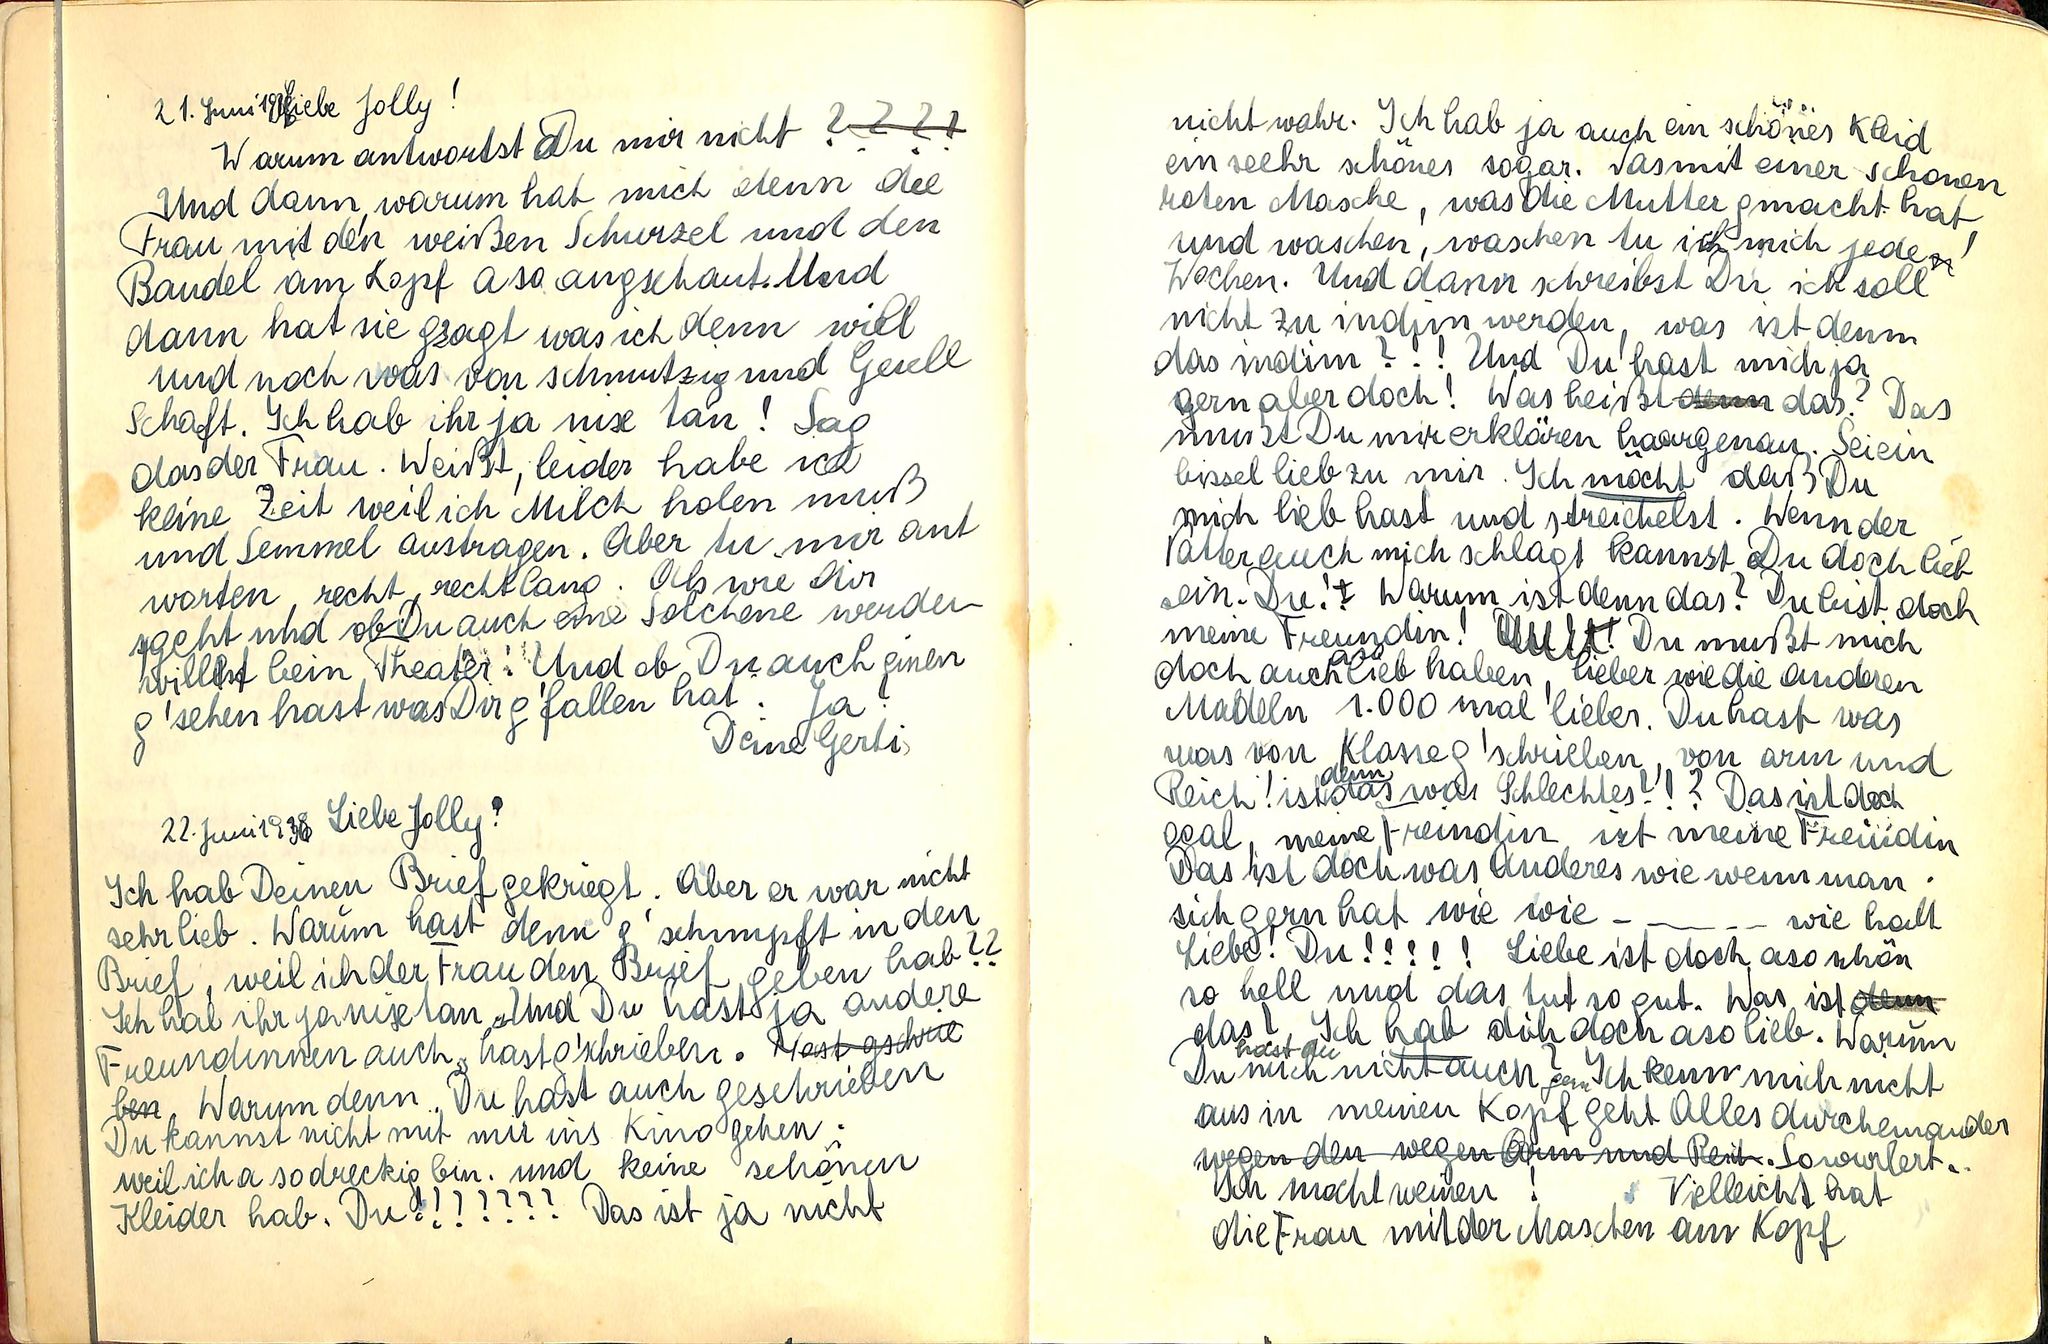 21. Juni 1938 Liebe Jolly!
Warum antwortst Du mir nicht ????
Und dann, warum hat mich denn die
Frau mit den weißen Schurzel und den
Bandel am Kopf a so angschaut. Und
dann hat sie gsagt was ich denn will
und noch was von schmutzig und Gesell
schaft. Ich hab ihr ja nix tan! Sag
das der Frau. Weißt, leider habe ich
keine Zeit weil ich Milch holen muß
und Semmel austragen. Aber tu mir ant
worten, recht, recht lang. Als wie dir
sgeht und ob Du auch eine Solchene werden
willst bein Theater! Und ob Du auch einen
g'sehen hast was Dir g'fallen hat. Ja!
Deine Gerti,
22. Juni 1938 Liebe Jolly?
Ich hab Deinen Brief gekriegt. Aber er war nicht
sehr lieb. Warum hast denn g'schmpft in den
Brief, weil ich der Frau den Brief geben hab??
Ich hab ihr ja nix tan „Und Du hast ja andere
Freundinnen auch„ hast g'schrieben. Hast gschrie
ben. Warum denn. Du hast auch geschrieben
Du kannst nicht mit mir ins Kino gehen.
weil ich a so dreckig bin. und keine schönen
Kleider hab. Du!!!????? Das ist ja nicht
nicht wahr. Ich hab ja auch ein schönes Kleid
ein seehr schönes sogar. Das mit einer schönen
roten Masche, was die Mutter gmacht hat,
und waschen, waschen tu ich mich jeden!
Wochen. Und dann schreibst Du ich soll
nicht zu indjin werden, was ist denn
das indim?.! Und Du hast mich ja
gern aber doch! Was heißt denn das? Das
mußt Du mir erklären haargenau. Sei ein
bissel lieb zu mir. Ich möcht daß Du
mich lieb hast und streichelst. Wenn der
Vatter auch mich schlagt kannst Du doch lieb
sein. Du!! Warum ist denn das? Du bist doch
meine Freundin! Du!!! Du mußt mich
doch auch aso lieb haben, lieber wie die anderen
Madeln 1.000 mal lieber. Du hast was
was von Klasse g'schrieben, von arm und
Reich! ist denn das was Schlechtes?!? Das ist doch
egal, meine Freindin ist meine Freundin
Das ist doch was Anderes wie wenn man
sich gern hat wie wie - - - - - wie halt
Liebe! Du!!!!! Liebe ist doch aso schön
so hell und das tut so gut. Was ist denn
das? Ich hab dich doch aso lieb. Warum
Du hast du mich nicht auch? gern Ich kenn mich nicht
aus in meinen Kopf geht Alles durcheinander
wegen den wegen Arm und Reich. So wurlert..
Ich mocht weinen! Vielleicht hat
die Frau mit der Maschen am Kopf